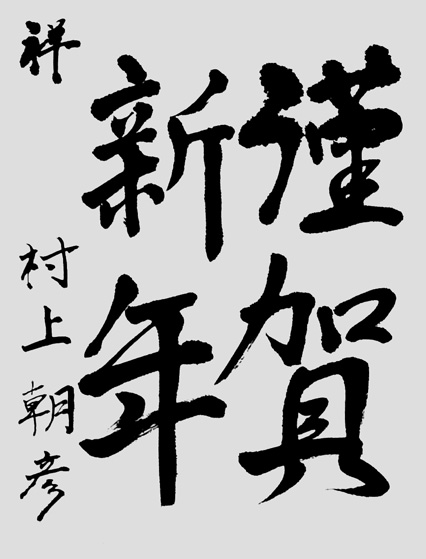 謹賀
新年
祥 村上朝彦